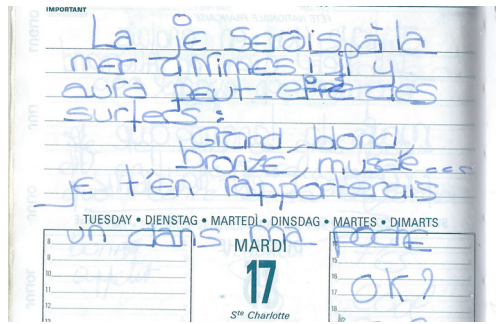 IMPORTANT
La je serais à la
mer à Nimes ! il y
aura peut-être des
surfers :
Grand, blond,
bronzé, musclé...
je t'en rapporterais
TUESDAY • DIENSTAG • MARTEDÌ • DINSDAG • MARTES • DIMARTS
un dans ma poche
MARDI
17
OK?
Ste Charlotte
8
9
10
11
12
15
16
17
18